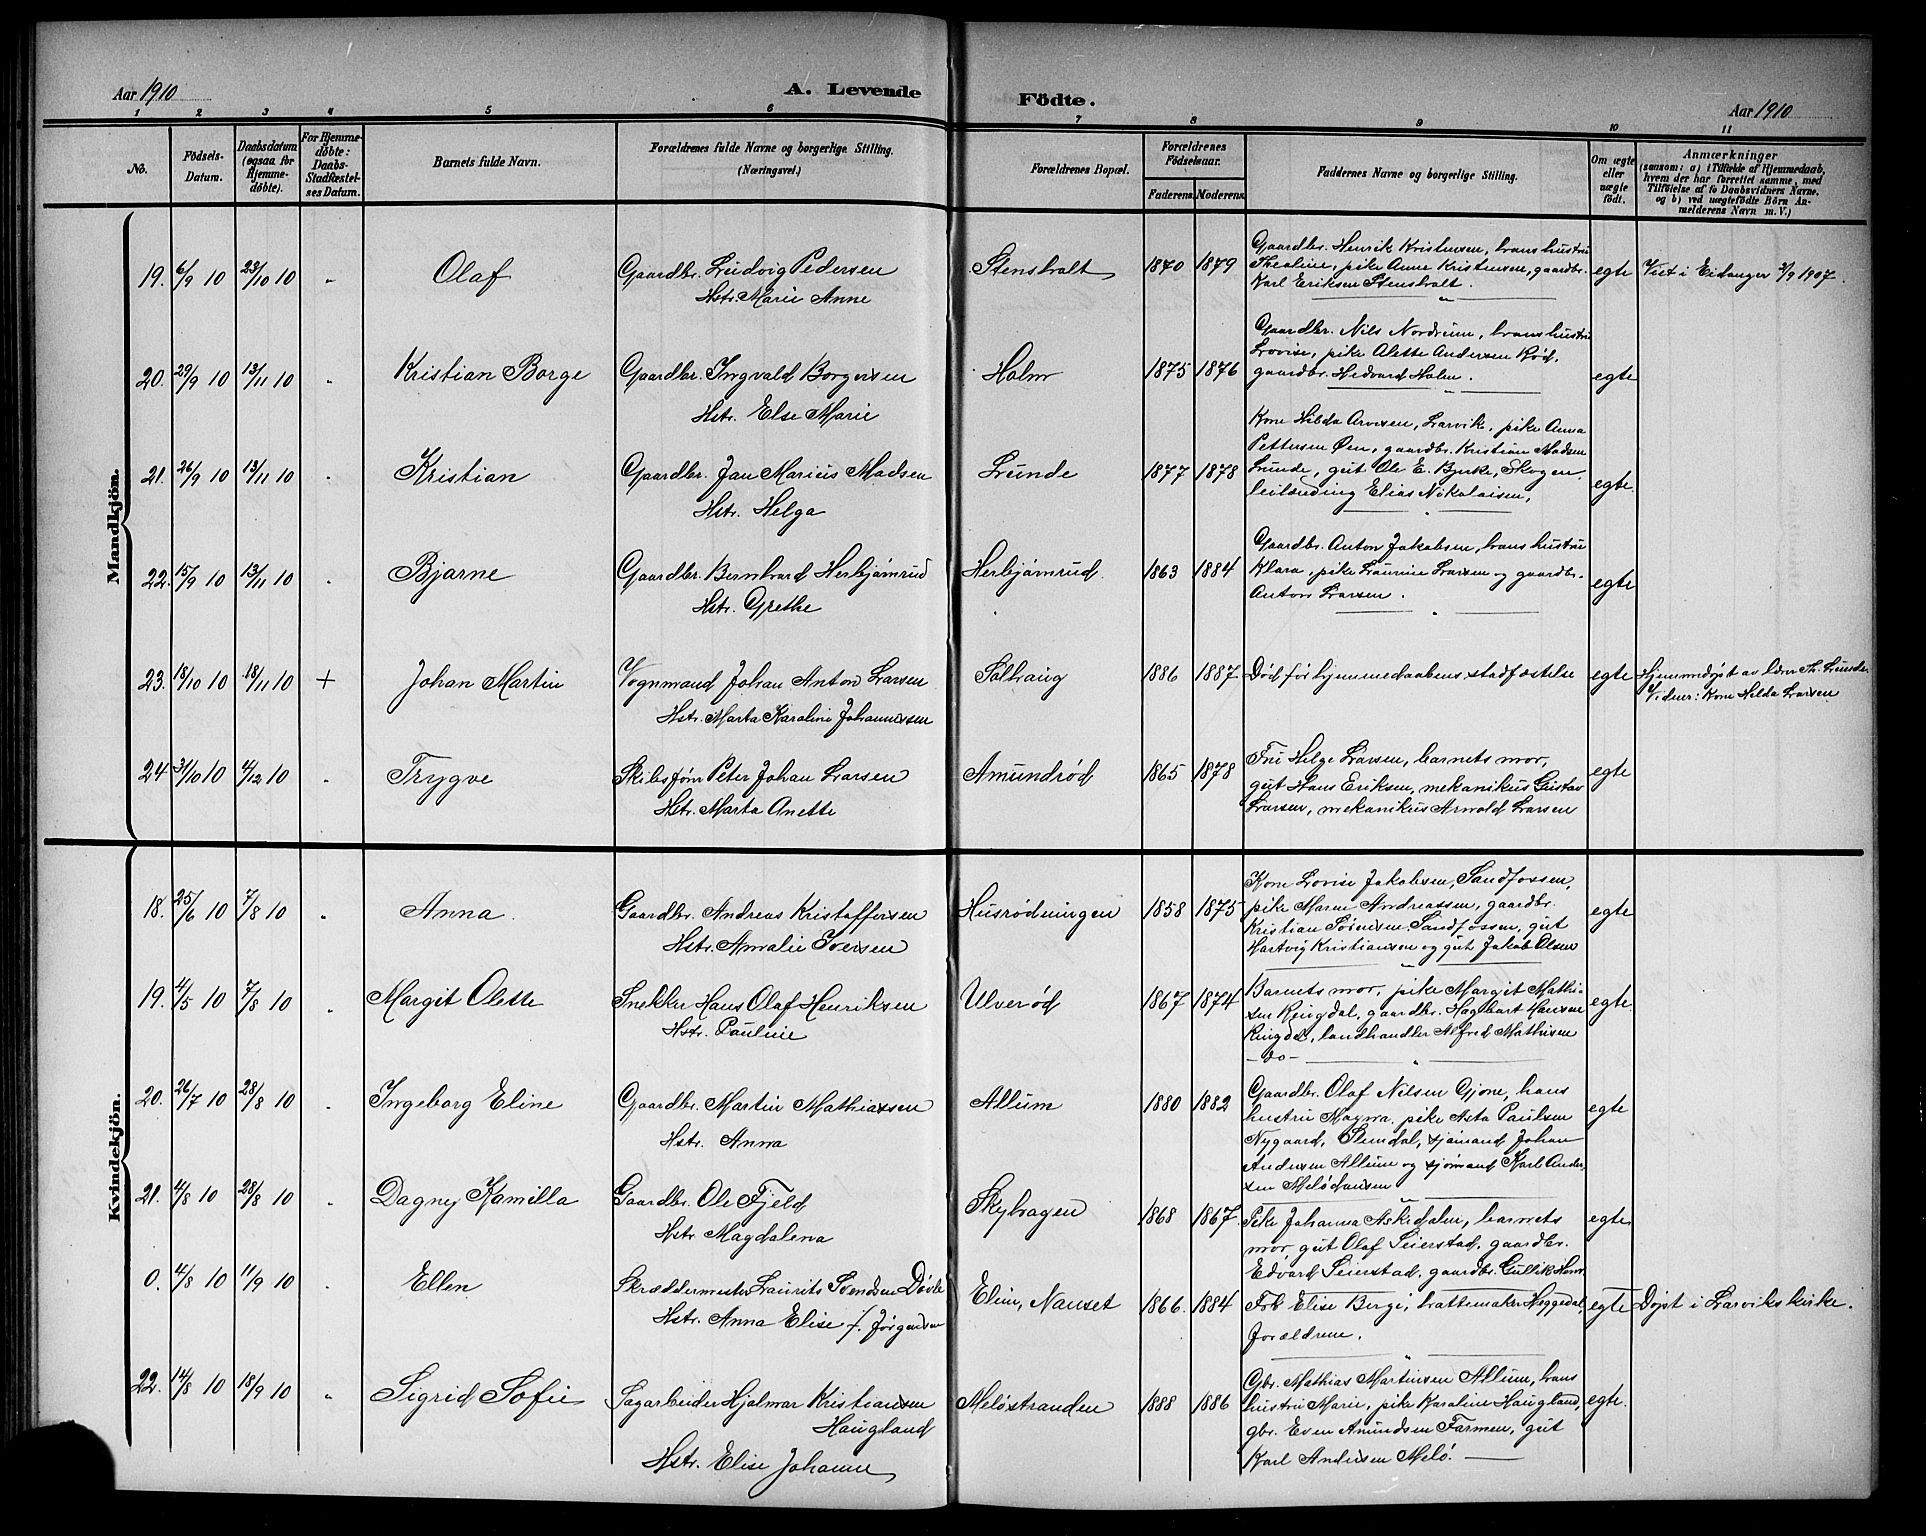 Aar 1910
A. Levende Födte.
Aar 1910
1 2 3 4 5 6 7 8 9 10 11
No.
Födsels-Datum.
Daabsdatum (ogsaa for Hjemme-döbte).
For Hjemme-döbte: Daabs-Stadfæstel-ses Datum.
Barnets fulde Navn.
Forældrenes fulde Navne og borgerlige Stilling. (Næringsvei.)
Forældrenes Bopæl.
Forældrenes Födselsaar.
Faderens. Moderens.
Faddernes Navne og borgerlige Stilling.
Om ægte eller uægte födt.
Anmærkninger
(saasom: a) i Tilfælde af Hjemmedaab, hvem der har forrettet samme, med Tilföielse af to Daabsvidners Navne, og b) ved uægtefödte Börn An-melderens Navn m. V.)
Mandkjön.
19. 6/9 10 23/10 10 " Olaf Gaardbr. Ludvig Pedersen Stensholt 1870 1879 egte Viet i Eidanger 3/9 1907.
Hstr. Marie Anne
Gaardbr. Henrik Kristensen, hans hustru
Thealine, pike Anne Kristensen, gaardbr.
Karl Eriksen Stensholt.
20. 29/9 10 13/11 10 " Kristian Borge Gaardbr. Ingvald Borgersen Holm 1875 1876 egte
Hstr. Else Marie
Gaardbr. Nils Nordrum, hans hustru
Lovise, pike Alette Andersen Rød,
gaardbr. Hedvard Holm.
21. 26/9 10 13/11 10 " Kristian Gaardbr. Jan Marius Madsen Lunde 1877 1878 egte.
Hstr. Helga
Kone Hilda Arvesen, Larvik, pike Anna
Pettersen Øen, gaardbr. Kristian Madsen
Lunde, gut Ole E. Bjerke, Skogen,
leilænding Elias Nikolaisen,
22. 15/9 10 13/11 10 " Bjarne Gaardbr. Bernhard Herbjørnrud Herbjørnrud. 1863 1884 egte
Hstr. Grethe
Gaardbr. Anton Jakobsen, hans hustru
Klara, pike Laurine Larsen og gaardbr.
Anton Larsen.
23. 18/10 10 18/11 10 + Johan Martin Vognmand Johan Anton Larsen Solhaug 1886 1887 Død før hjemmedaabens stadfæstelse egte Hjemmedøpt av lærer Th. Lunde
Hstr. Marta Karoline Johannessen Vidner: Kone Hilda Larsen
24 31/10 10 4/12 10 " Trygve Skibsfører Peter Johan Larsen Amundrød 1865 1878 egte
Hstr. Marta Anette
Fru Helge Larsen, barnets mor,
gut Hans Eriksen, mekanikus Gustav
Larsen, mekanikus Arnold Larsen
Kvindekjön.
18. 25/6 10 7/8 10 " Anna. Gaardbr. Andreas Kristoffersen Husrødningen 1858 1875 egte
Hstr. Amalie Iversen
Kone Lovise Jakobsen, Sandfossen,
pike Maren Andreassen, gaardbr.
Kristian Sørensen Sandfossen, gut
Hartvig Kristiansen og gut Jakob Olsen
19. 4/5 10 7/8 10 " Margit Olette Snekker Hans Olaf Henriksen Ulverød 1867 1874 egte.
Hstr. Pauline
Barnets mor, pike Margit Mathi-
sen Ringdal, gaardbr. Hagbart Hansen
Ringdal, landhandler Alfred Mathisen
- do -
20. 26/7 10 28/8 10 " Ingeborg Eline Gaardbr. Martin Mathiassen Allum 1880 1882 egte
Hstr. Anna
Gaardbr. Olaf Nilsen Gjone, hans
hustru Magna, pike Asta Paulsen
Nygaard, Slemdal, sjømand Johan
Andersen Allum og sjømand Karl Ander-
sen Melødansen
21. 4/8 10 28/8 10 " Dagny Kamilla Gaardbr. Ole Fjeld Skyhagen 1868 1867. egte
Hstr. Magdalena
Pike Johanna Askedalen, barnets
mor, gut Olaf Seierstad, gaardbr.
Edvard Seierstad, gaardbr. Gullik Holm
0. 4/8 10 11/9 10 " Ellen Skræddermester Laurits Svendsen Døvle Elim, Nanset 1866. 1884 egte Døpt i Larviks kirke.
Hstr. Anna Elise f. Jørgensen
Frk Elise Berge, hattemaker Heggedal,
forældrene.
22. 14/8 10 18/9 10 " Sigrid Sofie Sagarbeider Hjalmar Kristiansen Meløstranden 1888 1886 egte.
Haugland
Hstr. Elise Johanne
Gbr. Mathias Martinsen Allum, hans
hustru Marie, pike Karoline Haugland,
gbr. Even Amundsen Farmen, gut
Karl Andersen Melø.